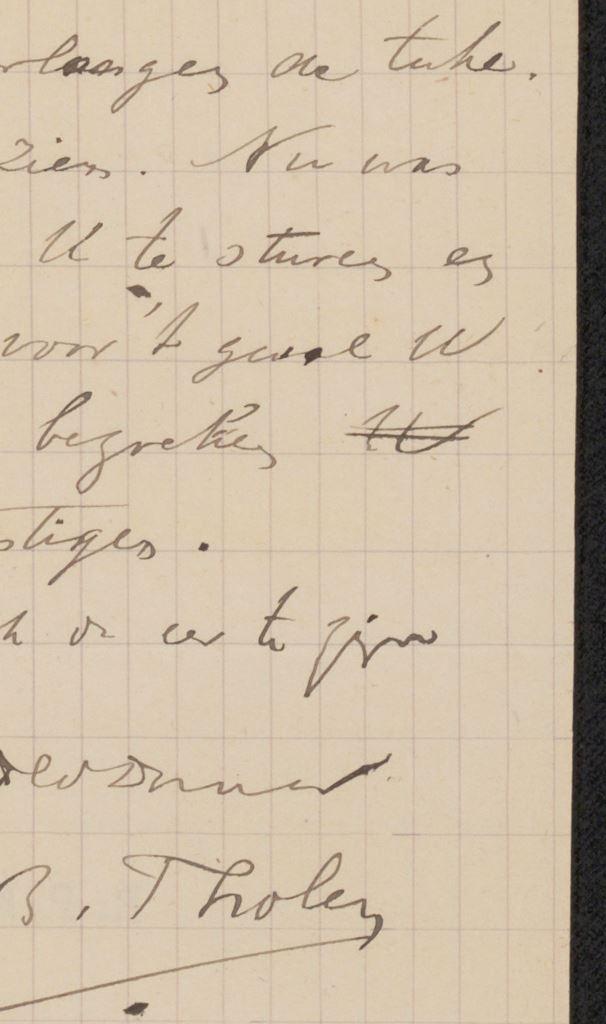 rlangen de teke.
zien. Nu was
U te sturen en
voor 't geval U
begreken U
stigen.
k de eer te zijn
dw Dienaar
B. Tholen